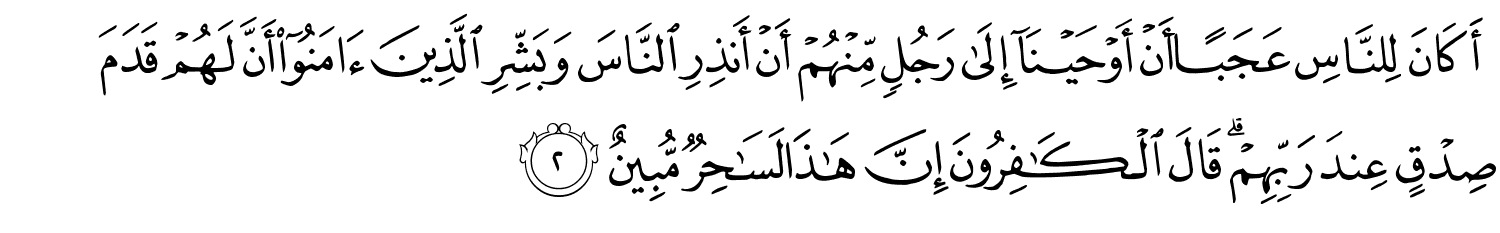 أَكَانَ لِلنَّاسِ عَجَبًا أَنْ أَوْحَيْنَآ إِلَىٰ رَجُلٍ مِّنْهُمْ أَنْ أَنذِرِ ٱلنَّاسَ وَبَشِّرِ ٱلَّذِينَ ءَامَنُوٓا۟ أَنَّ لَهُمْ قَدَمَ
صِدْقٍ عِندَ رَبِّهِمْ ۗ قَالَ ٱلْكَـٰفِرُونَ إِنَّ هَـٰذَا لَسَـٰحِرٌ مُّبِينٌ ٢